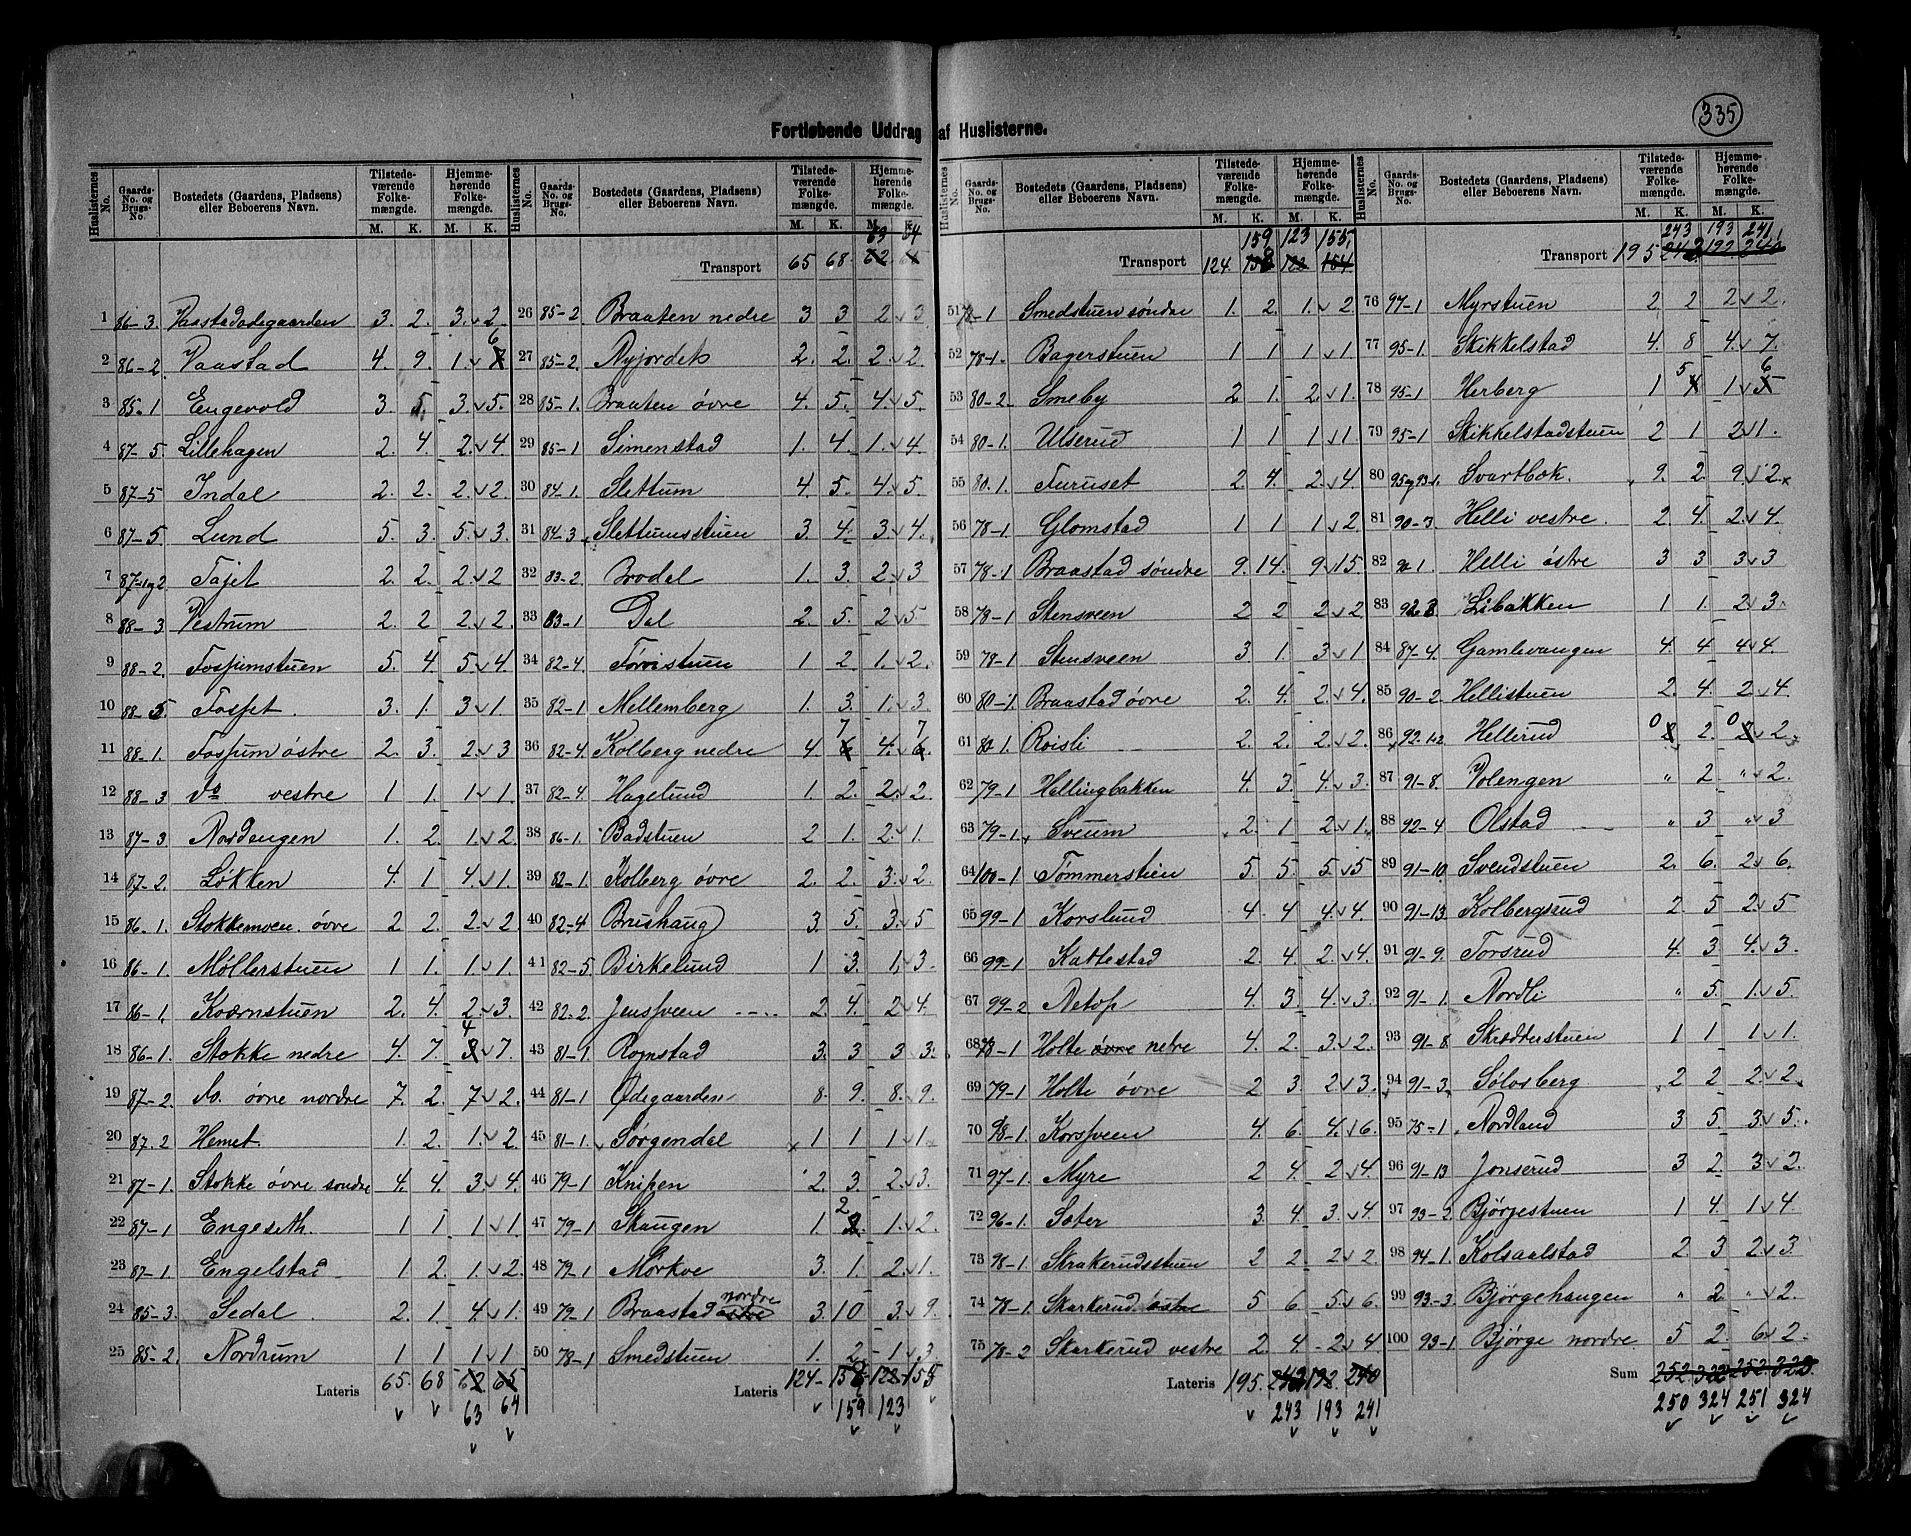 335
Fortløbende Uddrag af Huslisterne.
Huslisternes No. Gaards-No. og Brugs-No. Bostedets (Gaardens, Pladsens) eller Beboerens Navn. Tilstedeværende Folkemængde. M. K. Hjemmehørende Folkemængde. M. K.
1 86-3. Vaastadødegaarden 3. 2. 3. 2
2 86-2 Vaastad 4. 9. 1. 6
3 85-1 Engevold 3. 5. 3. 5.
4 87-5 Lillehagen 2. 4. 2. 4
5 87-5 Indal 2. 2. 2. 2.
6 87-5 Lund 5. 3. 5. 3.
7 87-1og2 Tajet 2. 2. 2. 2
8 88-3 Vestrum 2. 2 2. 2.
9 88-2. Fossumstuen 5. 4. 5. 4
10 88-5. Fosset. 3. 1. 3. 1.
11 88-1. Fossum østre 2. 3. 2. 3
12 88-3 do vestre 1 1. 1. 1
13 87-3 Nordengen 1. 2. 1. 2.
14 87-2. Løkken 4. 1 4. 1.
15 86-1. Stokkemoen øvre 2 2. 2. 2
16 86-1. Møllerstuen 1 1. 1. 1.
17 86-1. Kværnstuen 2. 4. 2. 3
18 86-1. Stokke nedre 4. 7. 4 7.
19 87-2. do. øvre nordre 7. 2. 7 2.
20 87-2 Hemet. 1. 2. 1. 2
21 87-1. Stokke øvre søndre 4. 4. 3. 4.
22 87-1 Engeseth. 1 1 1 1.
23 87-1. Engelstad 1 2. 1. 2.
24 85-3. Sedal. 2. 1. 4. 1.
25 85-2. Nordrum 1 1 1 1
Lateris 65. 68 62 65
63 64
Huslisternes No. Gaards-No. og Brugs-No. Bostedets (Gaardens, Pladsens) eller Beboerens Navn. Tilstedeværende Folkemængde. M. K. Hjemmehørende Folkemængde. M. K.
63 64
Transport 65 68 62 65
26 85-2 Braaten nedre 3 3 2 3
27 85-2. Nyjordet 2. 2. 2. 2.
28 85-1. Braaten øvre 4. 5. 4. 5
29 85-1 Simenstad 1. 4. 1. 4
30 84-1. Slettum 4. 5. 4. 5.
31 84-3 Slettumsstuen 3 4. 3 4.
32 83-2. Brodal 1. 3. 2. 3
33 83-1 Dal 2. 5. 2 5
34 82-4. Tørristuen 1 2. 1. 2.
35 82-1 Mellemberg 1. 3. 1. 3
36 82-4. Kolberg nedre 4. 7 4. 7
37 82-4. Hagelund 1. 2. 2. 2
38 86-1. Badstuen 2 1. 2. 1.
39 82-1. Kolberg øvre 2. 2. 3. 2
40 82-4 Brushaug 3. 5. 3. 5
41 82-5. Birkelund 1 3. 1. 3.
42 82-2. Jensveen 2. 4. 2 4.
43 81-1. Romstad 3. 3 3 3.
44 81-1 Ødegaarden 8. 9. 8. 9.
45 81-1. Sørgendal 1 1 1 1.
46 79-1 Knipen 2. 3. 2. 3.
47 79-1 Skaugen 1. 2 1. 2.
48 79-1 Mørkve 3. 1. 2. 1.
49 79-1 Braastad nordre 3. 10 3. 9.
50 78-1 Smedstuen 1. 2 1 3
Lateris 124 158 122 155
159 123
Huslisternes No. Gaards-No. og Brugs-No. Bostedets (Gaardens, Pladsens) eller Beboerens Navn. Tilstedeværende Folkemængde. M. K. Hjemmehørende Folkemængde. M. K.
159 123 155
Transport 124. 158 122 154
51 78-1 Smedstuen søndre 1. 2. 1. 2
52 78-1. Bagerstuen 1 1 1 1
53 80-2. Smeby 2 1. 2. 1.
54 80-1. Ulserud 1 1 1 1.
55 80-1. Furuset 2. 4. 2. 4.
56 78-1 Glomstad 1 1 1 2
57 78-1 Braastad søndre 9. 14. 9 15.
58 78-1 Stensveen 2 2 2 2
59 78-1 Stensveen 3 1. 3 1
60 80-1. Braastad øvre 2. 4. 2. 4.
61 80-1. Roisli 2. 2. 2. 2.
62 79-1 Hellingbakken 4. 3. 4. 3.
63 79-1. Sveum 2. 1 2 1.
64 100-1 Tømmerstien 5. 5. 5. 5
65 99-1 Korslund 4. 4 4. 4.
66 99-1 Kattestad 2. 4. 2. 4.
67 99-2 Netop 4. 3. 4. 3.
68 78-1 Holte øvre nedre 4. 2. 3. 2.
69 79-1 Holte øvre 2 3. 2 3.
70 98-1 Korsveen 4. 6. 4. 6.
71 97-1. Myre 2 4. 2 4.
72 96-1. Sæter 3. 4. 3. 4
73 98-1 Skrakerudsstuen 2 2 2 2
74 78-1. Skarkerud østre 5 6. 5. 6.
75 78-2 Skarkerud vestre 2. 4 2 4
Lateris 195. 242 192. 240
243 193 241
Huslisternes No. Gaards-No. og Brugs-No. Bostedets (Gaardens, Pladsens) eller Beboerens Navn. Tilstedeværende Folkemængde. M. K. Hjemmehørende Folkemængde. M. K.
243 193 241
Transport 195 242 192 240
76 97-1 Myrstuen 2 2 2 2.
77 95-1. Skikkelstad 4. 8 4. 7.
78 95-1. Herberg 1 5 1 6
79 95-1 Skikkelstadstuen 2 1 2 1.
80 95og93-1. Svartbok. 9. 2. 9. 2.
81 90-3 Helli vestre. 2. 4. 2. 4.
82 90-1. Helli østre 3 3 3 3
83 92-3. Libakken 1 1. 2 3.
84 87-4. Gamlevangen 4. 4 4 4.
85 90-2. Hellistuen 2. 4. 2 4.
86 92-1.2 Hellerud 0 2. 0 2
87 91-8. Volengen " 2. " 2.
88 92-4 Olstad " 3 " 3
89 91-10 Svendstuen 2. 6. 2 6.
90 91-13. Kolbergsrud 2 5 2. 5
91 91-9. Torsrud 4. 3. 4. 3.
92 91-1. Nordli " 5. 1. 5.
93 91-8. Skrædderstuen 1 1 1 1.
94 91-3. Sølosberg 2 2 2. 2.
95 75-1. Nordland 3 5. 3. 5.
96 91-13 Jonserud 3 2. 3. 2.
97 93-2. Bjørgestuen 1 4. 1 4.
98 94-1. Kolsaalstad 2. 3 2. 3.
99 93-3. Bjørgehaugen " 2. " 2.
100 93-1. Bjørge nordre. 5 2. 6 2.
Sum 252 322 252 323
250 324 251 324